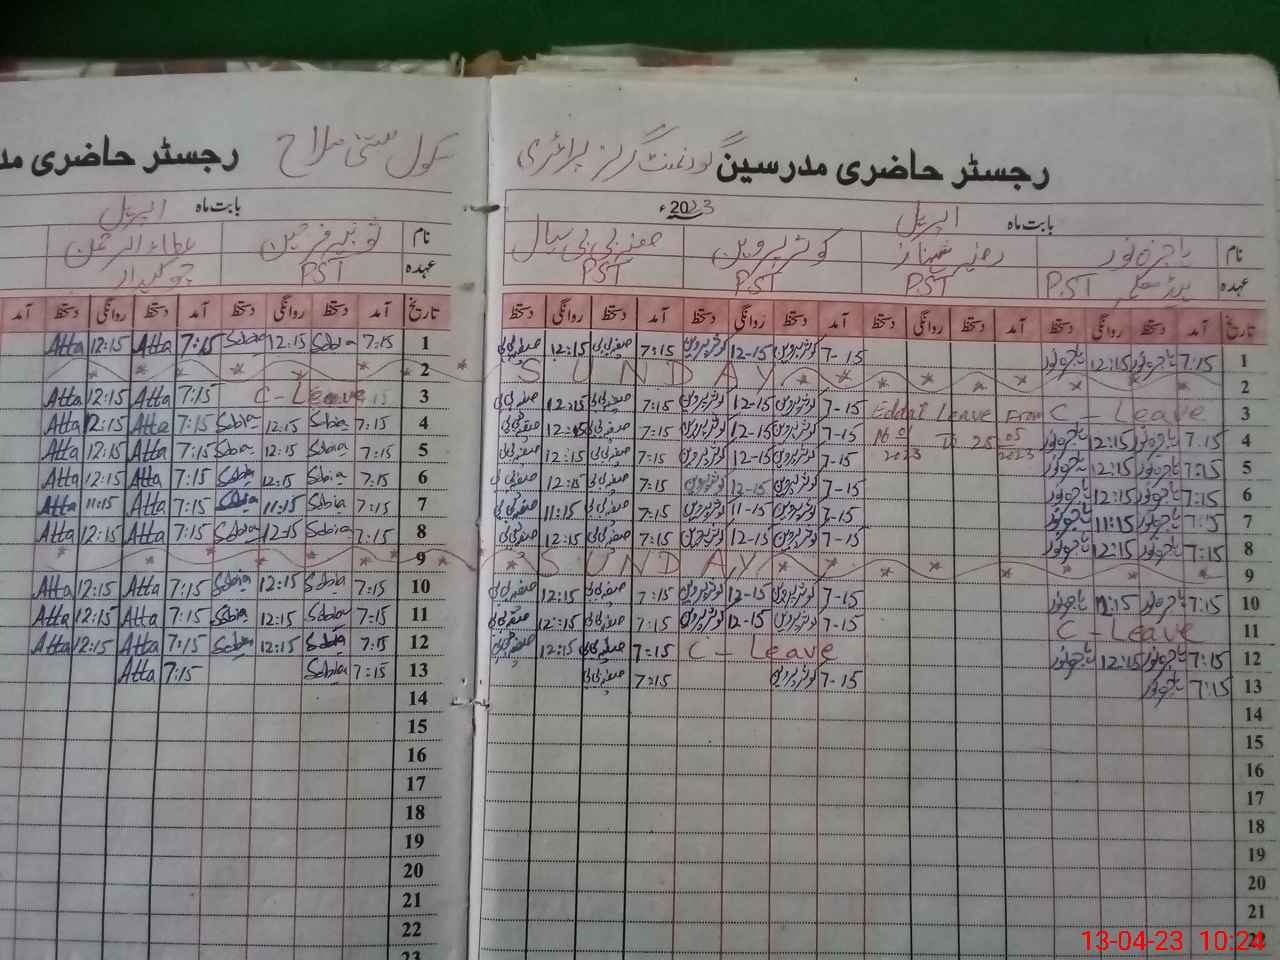 رجسٹر حاضری مدرسین گورنمنٹ گرلز پرائمری
بابت ماہ اپریل 2023ء
نام ہاجرہ نور رضیہ شہناز کوثر پروین صغریٰ بی بی سیال
عہدہ PST PST PST PST
تاریخ آمد دستخط روانگی دستخط آمد دستخط روانگی دستخط آمد دستخط روانگی دستخط آمد دستخط روانگی دستخط
1 7:15 ہاجرہ نور 12:15 ہاجرہ نور 7-15 کوثر پروین 12-15 کوثر پروین 7:15 صغریٰ بی بی 12:15 صغریٰ بی بی
2 SUNDAY
3 C - Leave Eddat Leave From 7-15 کوثر پروین 12-15 کوثر پروین 7:15 صغریٰ بی بی 12:15 صغریٰ بی بی
4 7:15 ہاجرہ نور 12:15 ہاجرہ نور 16 01 2023 To 25 05 2023 7-15 کوثر پروین 12-15 کوثر پروین 7:15 صغریٰ بی بی 12:15 صغریٰ بی بی
5 7:15 ہاجرہ نور 12:15 ہاجرہ نور 7-15 کوثر پروین 12-15 کوثر پروین 7:15 صغریٰ بی بی 12:15 صغریٰ بی بی
6 7:15 ہاجرہ نور 12:15 ہاجرہ نور 7-15 کوثر پروین 12-15 کوثر پروین 7:15 صغریٰ بی بی 12:15 صغریٰ بی بی
7 7:15 ہاجرہ نور 11:15 ہاجرہ نور 7-15 کوثر پروین 11-15 کوثر پروین 7:15 صغریٰ بی بی 11:15 صغریٰ بی بی
8 7:15 ہاجرہ نور 12:15 ہاجرہ نور 7-15 کوثر پروین 12-15 کوثر پروین 7:15 صغریٰ بی بی 12:15 صغریٰ بی بی
9 SUNDAY
10 7:15 ہاجرہ نور 12:15 ہاجرہ نور 7-15 کوثر پروین 12-15 کوثر پروین 7:15 صغریٰ بی بی 12:15 صغریٰ بی بی
11 C - Leave 7-15 کوثر پروین 12-15 کوثر پروین 7:15 صغریٰ بی بی 12:15 صغریٰ بی بی
12 7:15 ہاجرہ نور 12:15 ہاجرہ نور C - Leave 7:15 صغریٰ بی بی 12:15 صغریٰ بی بی
13 7:15 ہاجرہ نور 7-15 کوثر پروین 7:15 صغریٰ بی بی
14
15
16
17
18
19
20
21
سکول بستی ملاح رجسٹر حاضری
بابت ماہ اپریل
نام ثوبیہ فرحین عطاء الرحمن
عہدہ PST چوکیدار
تاریخ آمد دستخط روانگی دستخط آمد دستخط روانگی دستخط آمد
1 7:15 Sobia 12:15 Sobia 7:15 Atta 12:15 Atta
2
3 C - Leave 7:15 Atta 12:15 Atta
4 7:15 Sobia 12:15 Sobia 7:15 Atta 12:15 Atta
5 7:15 Sobia 12:15 Sobia 7:15 Atta 12:15 Atta
6 7:15 Sobia 12:15 Sobia 7:15 Atta 12:15 Atta
7 7:15 Sobia 11:15 Sobia 7:15 Atta 11:15 Atta
8 7:15 Sobia 12:15 Sobia 7:15 Atta 12:15 Atta
9
10 7:15 Sobia 12:15 Sobia 7:15 Atta 12:15 Atta
11 7:15 Sobia 12:15 Sobia 7:15 Atta 12:15 Atta
12 7:15 Sobia 12:15 Sobia 7:15 Atta 12:15 Atta
13 7:15 Sobia 7:15 Atta
14
15
16
17
18
19
20
21
22
23
13-04-23 10:24